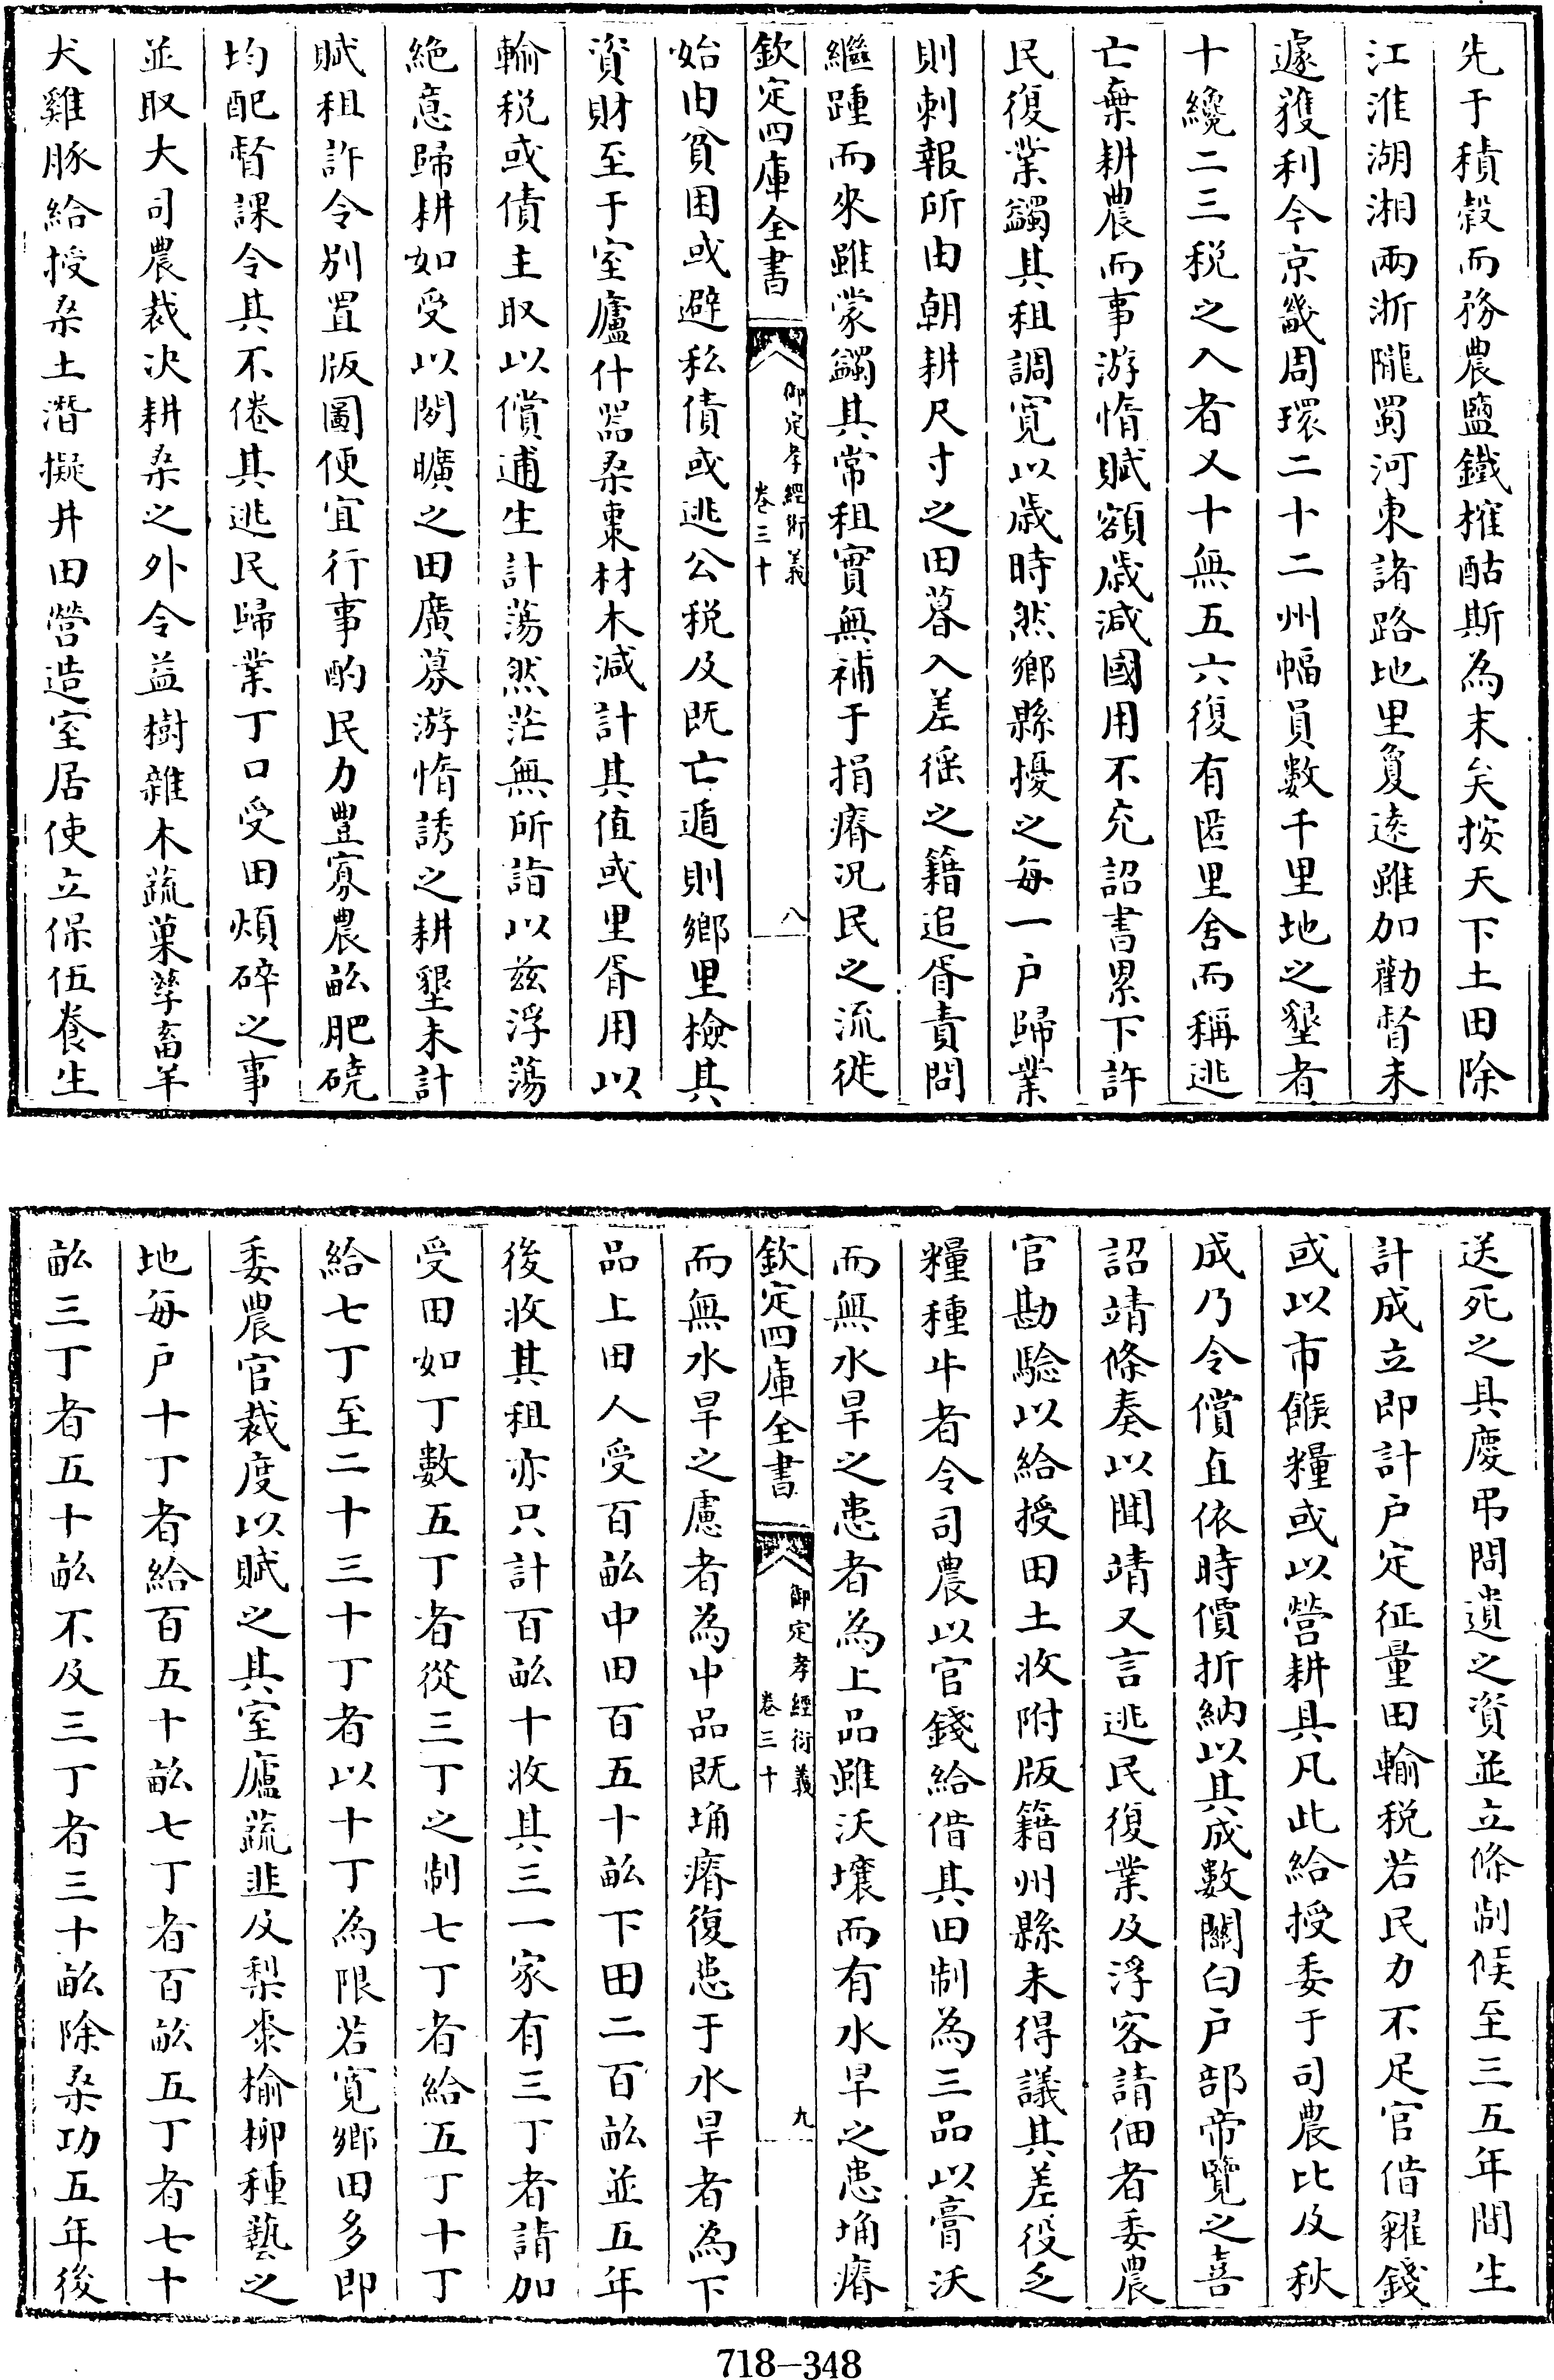 先于積穀而務農鹽鐵榷酤斯為末矣按天下土田除
江淮湖湘兩浙隴蜀河東諸路地里夐遠雖加勸督未
遽獲利今京畿周環二十二州幅員數千里地之墾者
十纔二三稅之入者又十無五六復有匿里舍而稱逃
亡棄耕農而事游惰賦額歲減國用不充詔書累下許
民復業蠲其租調寛以歲時然鄉縣擾之每一戶歸業
則刺報所由朝耕尺寸之田暮入差徭之籍追胥責問
繼踵而來雖蒙蠲其常租實無補于捐瘠况民之流徙
欽定四庫全書
御定孝經衍義
卷三十
八
始由貧困或避私債或逃公稅及既亡遁則鄉里檢其
資財至于室廬什器桑棗材木減計其值或里胥用以
輸稅或債主取以償逋生計蕩然茫無所詣以兹浮蕩
絶意歸耕如受以閒曠之田廣募游惰誘之耕墾未計
賦租許令别置版圖便宜行事酌民力豐寡農畝肥磽
均配督課令其不倦其逃民歸業丁口受田煩碎之事
並取大司農裁决耕桑之外令益樹雜木蔬菓孳畜羊
犬雞豚給授桑土潛擬井田營造室居使立保伍養生
送死之具慶弔問遺之資並立條制候至三五年間生
計成立即計戶定征量田輸稅若民力不足官借糴錢
或以市餱糧或以營耕具凡此給授委于司農比及秋
成乃令償直依時價折納以其成數關白戶部帝覽之喜
詔靖條奏以聞靖又言逃民復業及浮客請佃者委農
官勘驗以給授田土收附版籍州縣未得議其差役乏
糧種牛者令司農以官錢給借其田制為三品以膏沃
而無水旱之患者為上品雖沃壤而有水旱之患埆瘠
欽定四庫全書
御定孝經衍義
卷三十
九
而無水旱之慮者為中品既埆瘠復患于水旱者為下
品上田人受百畝中田百五十畝下田二百畝並五年
後收其租亦只計百畝十收其三一家有三丁者請加
受田如丁數五丁者從三丁之制七丁者給五丁十丁
給七丁至二十三十丁者以十丁為限若寛鄉田多即
委農官裁度以賦之其室廬蔬韭及梨棗榆柳種藝之
地每戶十丁者給百五十畝七丁者百畝五丁者七十
畝三丁者五十畝不及三丁者三十畝除桑功五年後
718-348